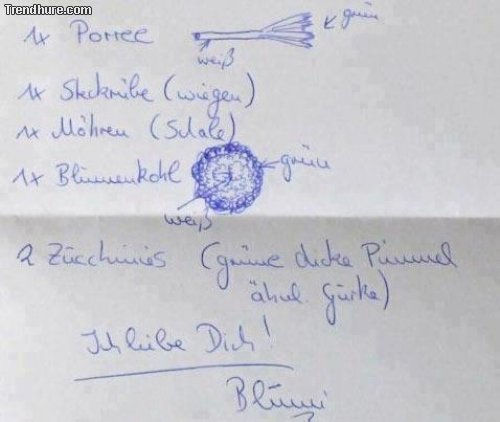 Trendhure.com
1x Porree weiß grün
1x Steckrübe (wiegen)
1x Möhren (Schale)
1x Blumenkohl grüne
weiß
2 Zucchinies (grüne dicke Pimmel
ähnl. Gurke)
Ich liebe Dich!
Blümi